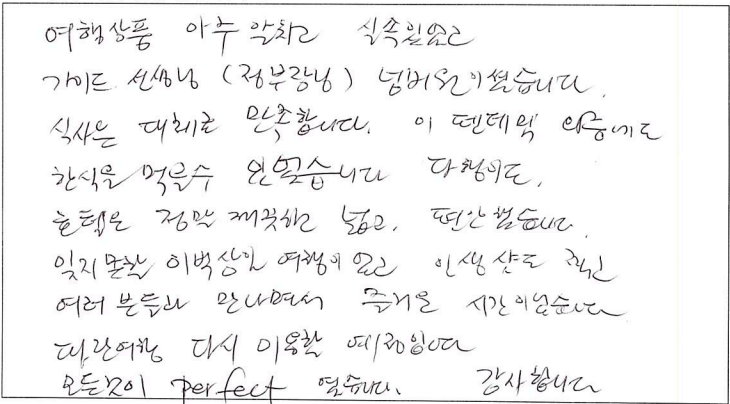 여행상품 아주 알차고 실속있었고
가이드 선생님 (정부장님) 넘버원이셨습니다.
식사는 대체로 만족합니다. 이 펜데믹 와중에도
한식을 먹을수 있었습니다 다행이도.
호텔은 정말 깨끗하고 넓고, 편안했습니다.
잊지못할 이벅상일 여행이었고 인생샷도 찍고
여러 분들과 만나면서 즐거운 시간이었습니다
대한여행 다시 이용할 예정입니다
모든것이 perfect 였습니다. 감사합니다